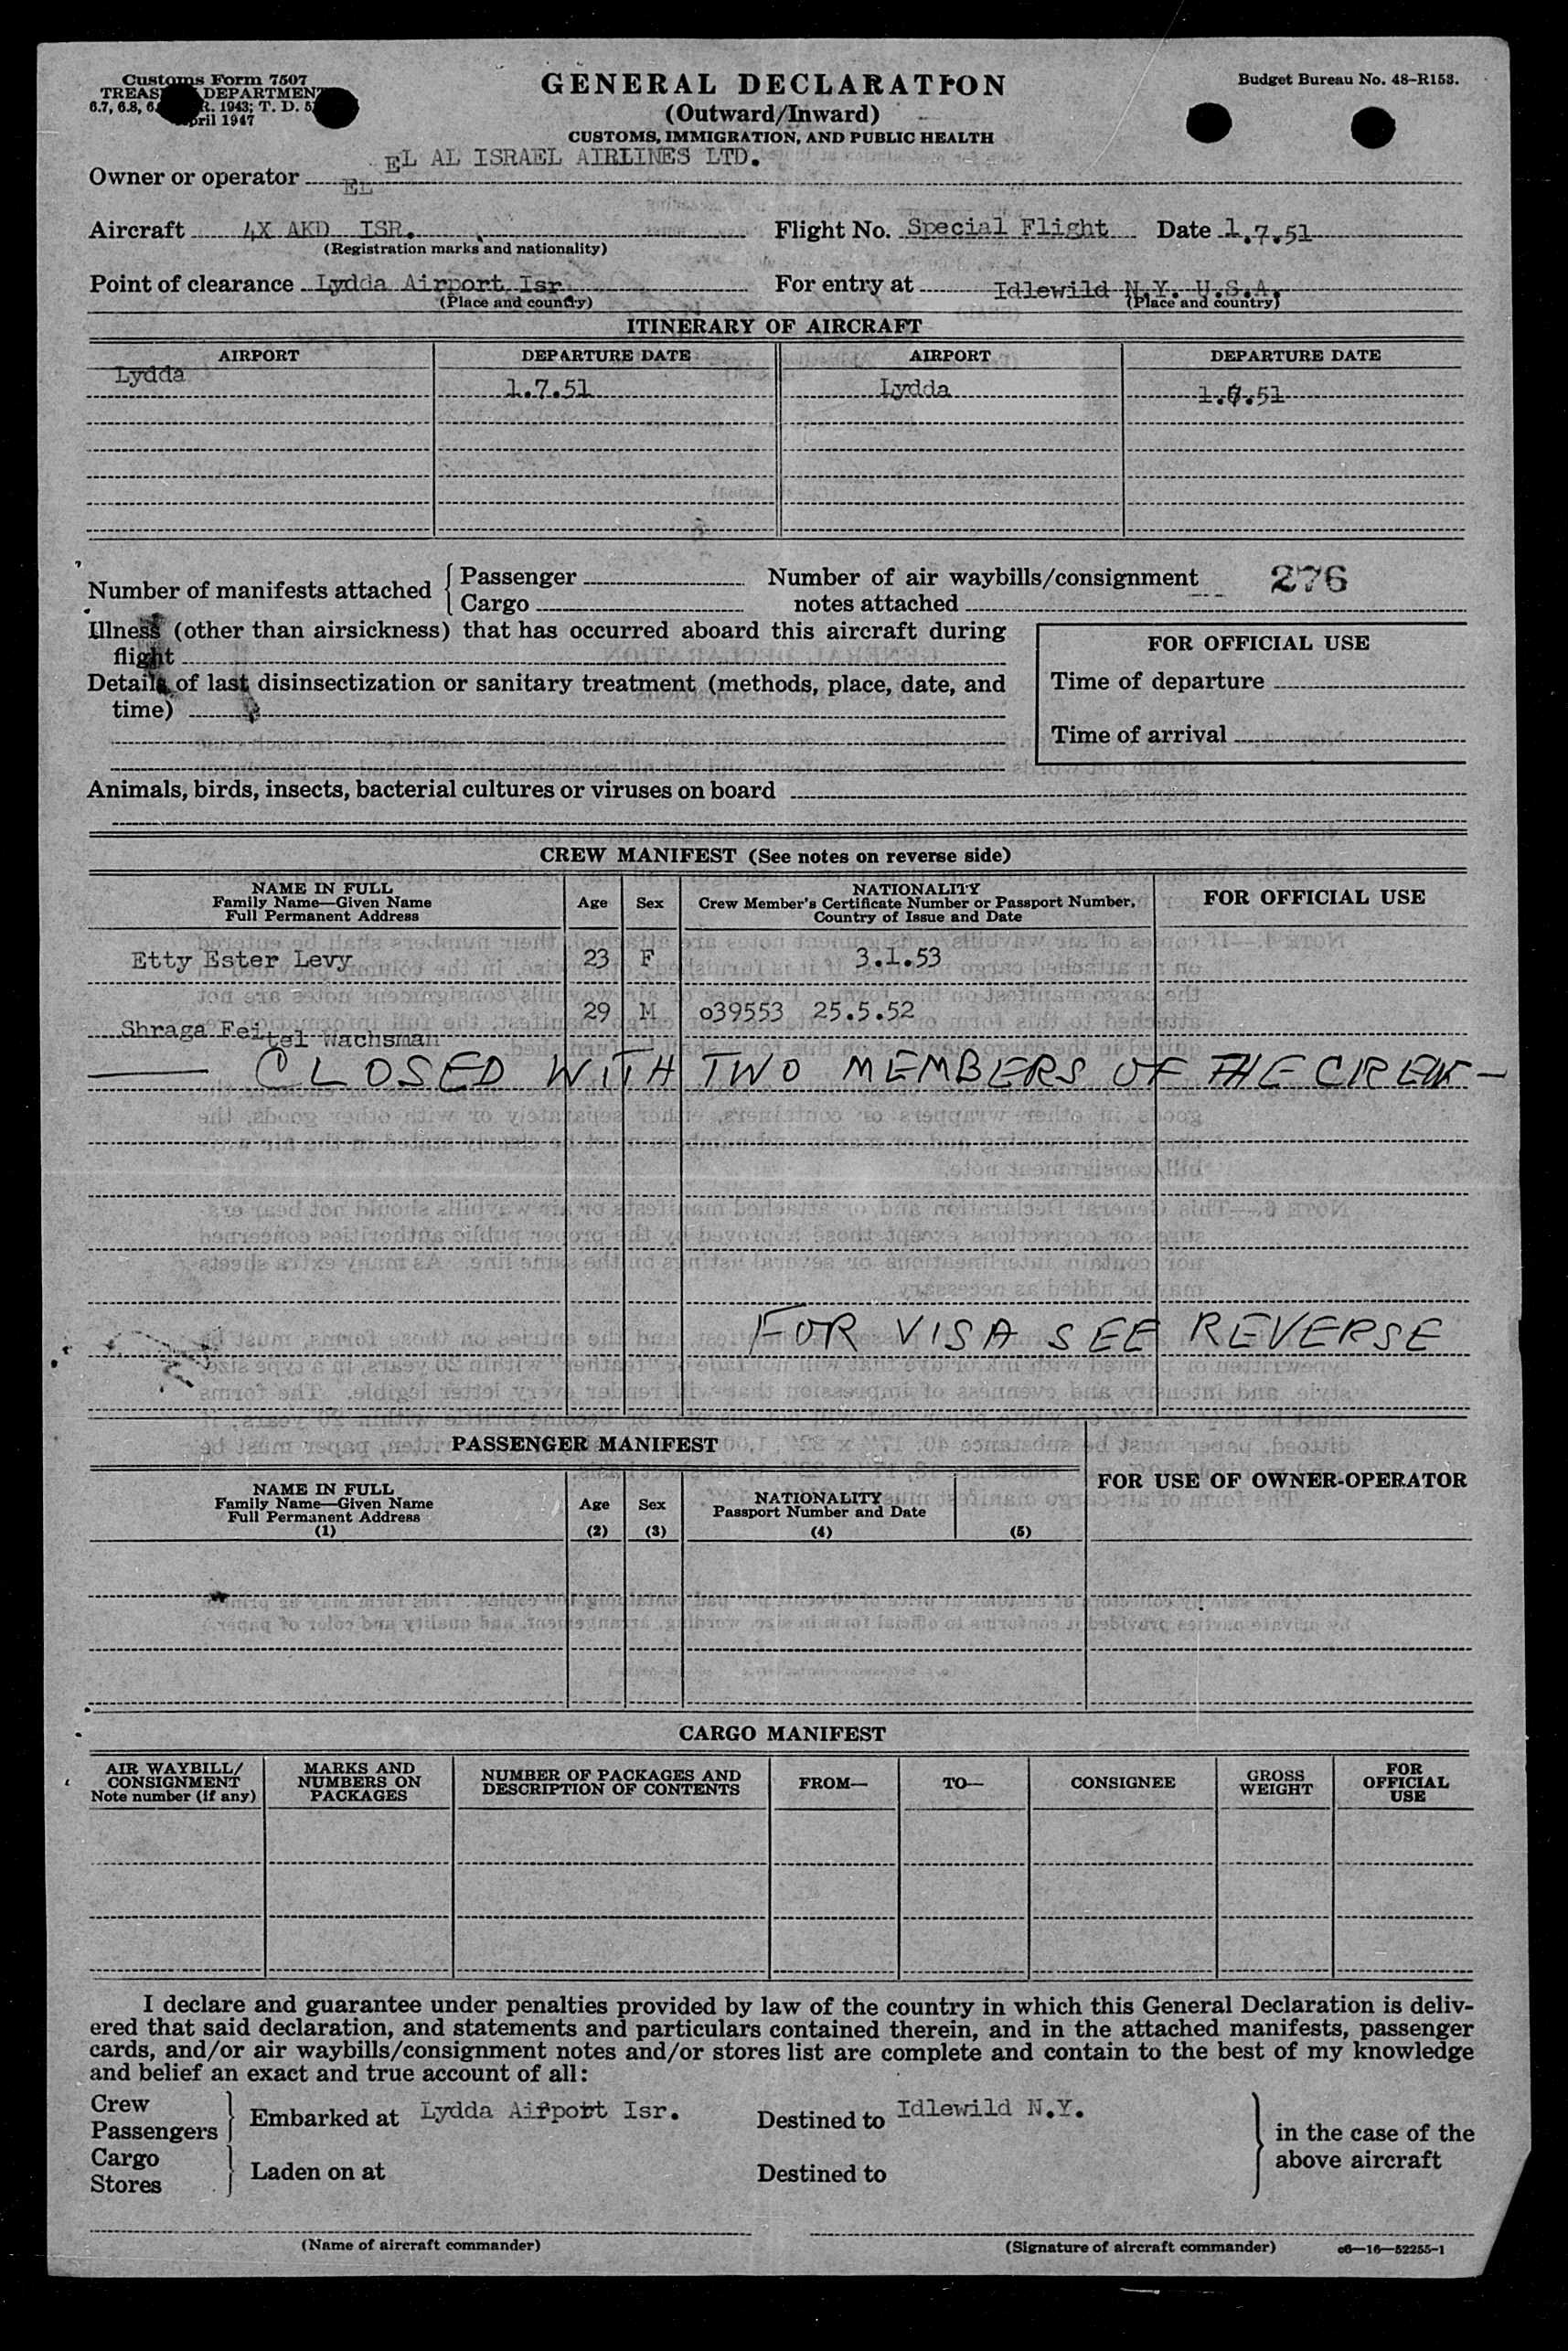 Customs Form 7507
GENERAL DECLARATION
Budget Bureau No. 48-R153.
TREAS DEPARTMENT
(Outward/Inward)
6.7, 6.8, 6. R. 1943; T. D. 5
April 1947
CUSTOMS, IMMIGRATION, AND PUBLIC HEALTH
Owner or operator EL AL ISRAEL AIRLINES LTD.
EL
Aircraft 4X AKD ISR. Flight No. Special Flight Date 1.7.51
(Registration marks and nationality)
Point of clearance Lydda Airport Isr. For entry at Idlewild N.Y. U.S.A.
(Place and country) (Place and country)
ITINERARY OF AIRCRAFT
AIRPORT DEPARTURE DATE AIRPORT DEPARTURE DATE
Lydda 1.7.51 Lydda 1. .51
Number of manifests attached { Passenger
Cargo
Number of air waybills/consignment 276
notes attached
Illness (other than airsickness) that has occurred aboard this aircraft during
flight
FOR OFFICIAL USE
Details of last disinsectization or sanitary treatment (methods, place, date, and
time)
Time of departure
Time of arrival
Animals, birds, insects, bacterial cultures or viruses on board
CREW MANIFEST (See notes on reverse side)
NAME IN FULL
Family Name—Given Name
Full Permanent Address
Age
Sex
NATIONALITY
Crew Member's Certificate Number or Passport Number,
Country of Issue and Date
FOR OFFICIAL USE
Etty Ester Levy 23 F 3.1.53
Shraga Feitel Wachsman 29 M o39553 25.5.52
CLOSED WITH TWO MEMBERS OF THE CREW —
FOR VISA SEE REVERSE
PASSENGER MANIFEST
FOR USE OF OWNER-OPERATOR
NAME IN FULL
Family Name—Given Name
Full Permanent Address
(1)
Age
(2)
Sex
(3)
NATIONALITY
Passport Number and Date
(4)
(5)
CARGO MANIFEST
AIR WAYBILL/
CONSIGNMENT
Note number (if any)
MARKS AND
NUMBERS ON
PACKAGES
NUMBER OF PACKAGES AND
DESCRIPTION OF CONTENTS
FROM—
TO—
CONSIGNEE
GROSS
WEIGHT
FOR
OFFICIAL
USE
I declare and guarantee under penalties provided by law of the country in which this General Declaration is deliv-
ered that said declaration, and statements and particulars contained therein, and in the attached manifests, passenger
cards, and/or air waybills/consignment notes and/or stores list are complete and contain to the best of my knowledge
and belief an exact and true account of all:
Crew
Passengers } Embarked at Lydda Airport Isr. Destined to Idlewild N.Y.
Cargo
Stores } Laden on at Destined to
} in the case of the
above aircraft
(Name of aircraft commander) (Signature of aircraft commander) c6—16—52255-1